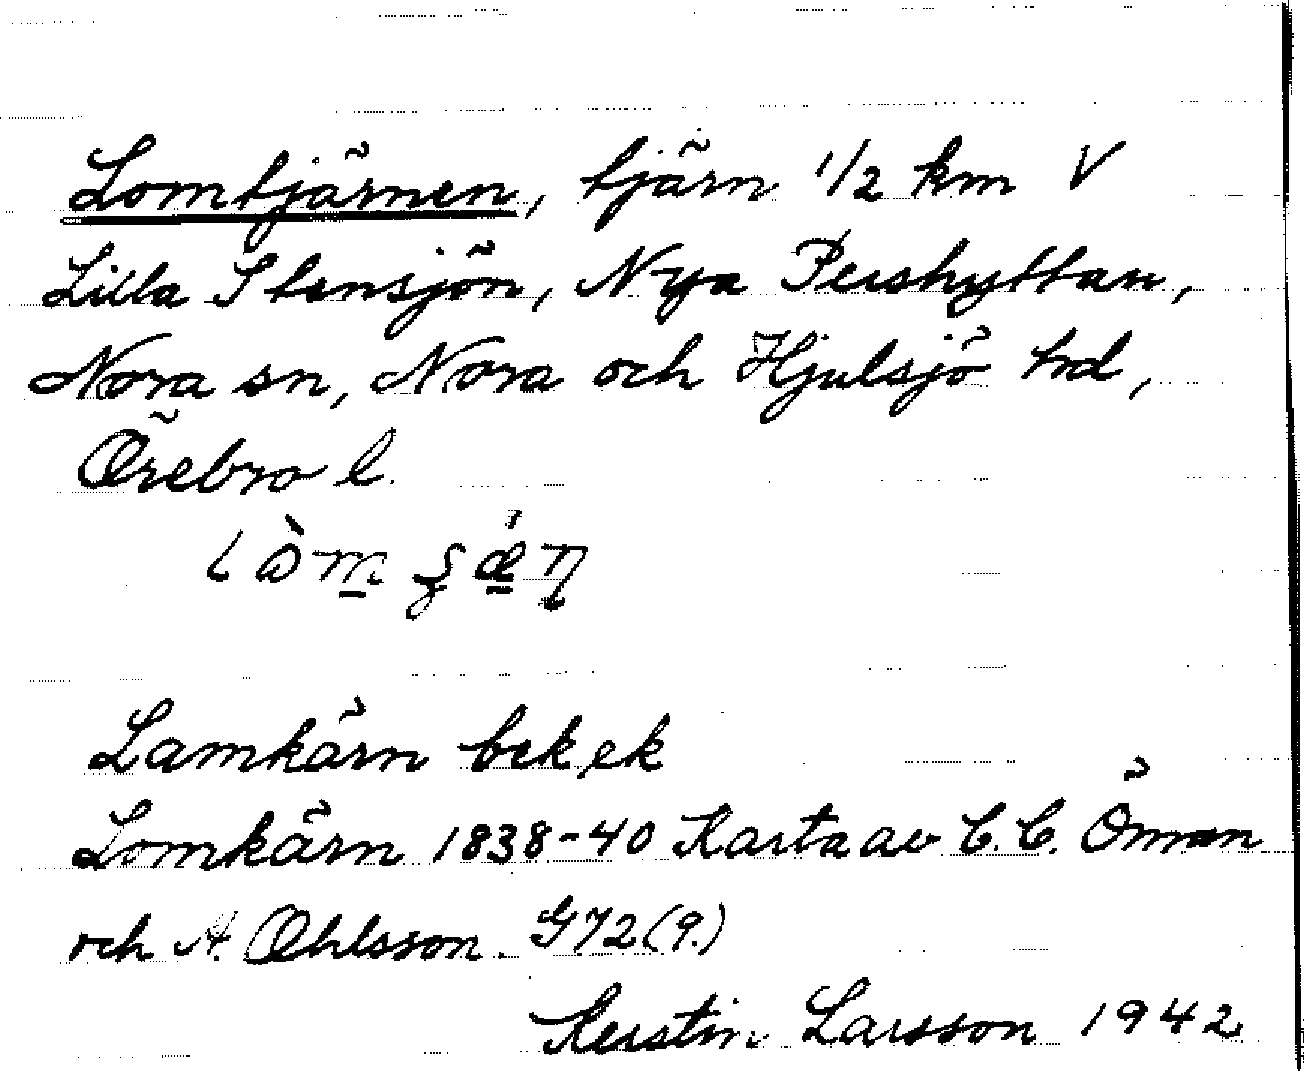 Lomtjärnen, tjärn 1/2 km V
Lilla Stensjön, Nya Pershyttan,
Nora sn, Nora och Hjulsjö hd,
Örebro l.
Lamkärn bek, ek
Lomkärn 1838-40 Karta av C. C. Öman
och A. Ohlsson. G72(9.)
Kerstin Larsson 1942